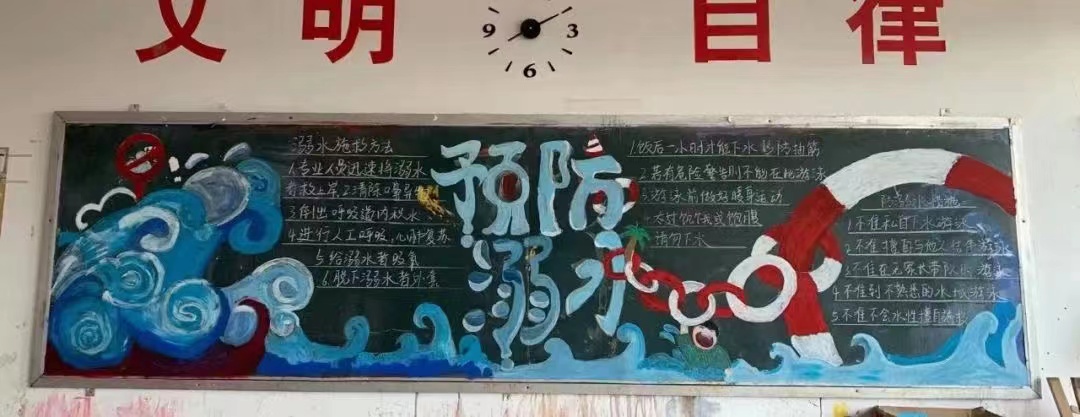 文明
自律
3
6
9
溺水施救方法
1.专业人员迅速将溺水
者救上岸2.清除口鼻
3.排出呼吸道内积水
4.进行人工呼吸,心肺复苏
5.给溺水者吸氧
6.脱下溺水者外套
预防
溺水
1.饭后一小时才能下水 预防抽筋
2.若有危险警告则不能在此游泳
3.游泳前做好暖身运动
4.太过饥饿或饱腹
请勿下水
1.不准私自下水游泳
2.不准擅自与他人结伴游泳
3.不准在无家长带队下游泳
4.不准到不熟悉的水域游泳
5.不准不会水性擅自施救